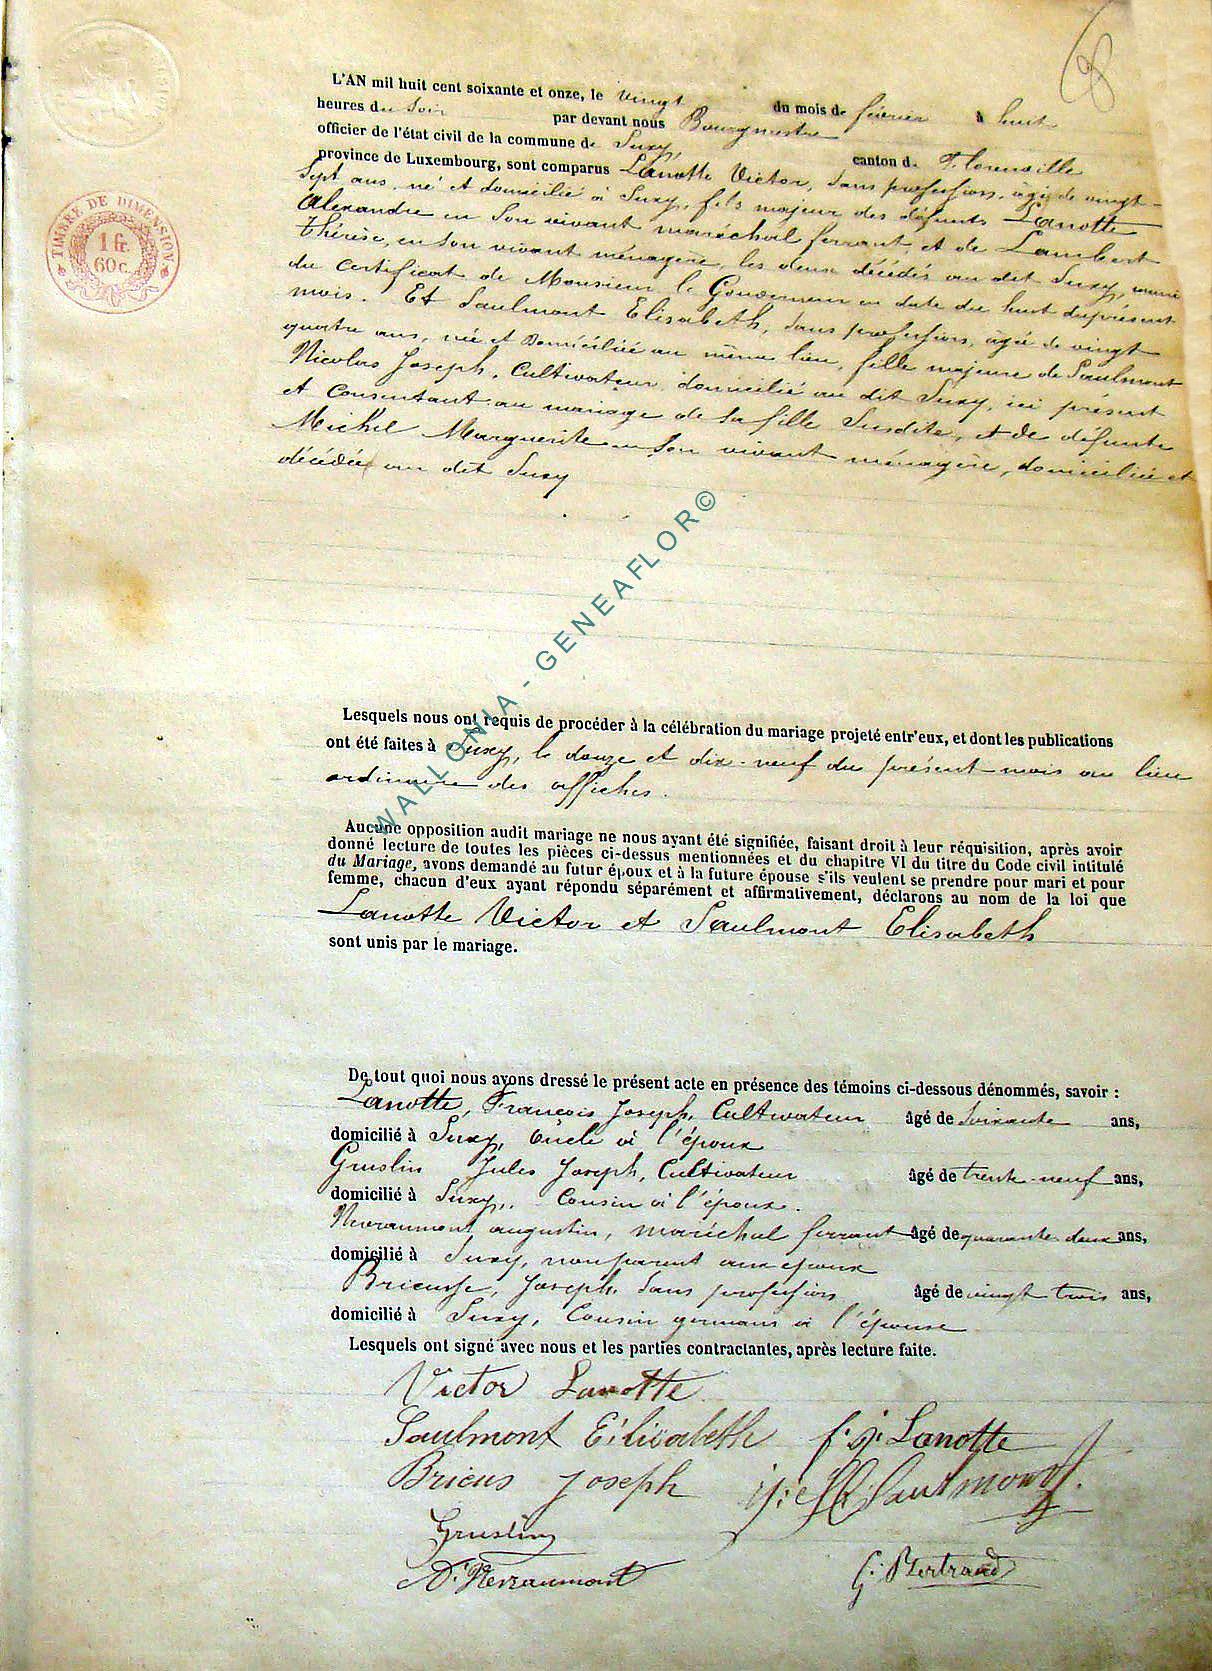 8
TIMBRE DE DIMENSION
1 fr.
60 c.
L'AN mil huit cent soixante et onze, le vingt du mois de février à huit
heures du soir par devant nous Bourgmestre
officier de l'état civil de la commune de Suxy, canton de Florenville
province de Luxembourg, sont comparus Lanotte Victor, sans profession, âgé de vingt-
sept ans, né et domicilié à Suxy, fils majeur des défunts Lanotte
Alexandre en son vivant maréchal ferrant et de Lambert
Thérèse, en son vivant ménagère, les deux décédés au dit Suxy, muni
du certificat de Monsieur le Gouverneur en date du huit du présent
mois. Et Saulmont Elisabeth, sans profession, âgée de vingt
quatre ans, née et domiciliée au même lieu, fille majeure de Saulmont
Nicolas Joseph, Cultivateur domicilié au dit Suxy, ici présent
et consentant au mariage de sa fille susdite, et de défunte
Michel Marguerite en son vivant ménagère, domiciliée et
décédée au dit Suxy
WALLONIA - GENEAFLOR©
Lesquels nous ont requis de procéder à la célébration du mariage projeté entr'eux, et dont les publications
ont été faites à Suxy, le douze et dix-neuf du présent mois au lieu
ordinaire des affiches.
Aucune opposition audit mariage ne nous ayant été signifiée, faisant droit à leur réquisition, après avoir
donné lecture de toutes les pièces ci-dessus mentionnées et du chapitre VI du titre du Code civil intitulé
du Mariage, avons demandé au futur époux et à la future épouse s'ils veulent se prendre pour mari et pour
femme, chacun d'eux ayant répondu séparément et affirmativement, déclarons au nom de la loi que
Lanotte Victor et Saulmont Elisabeth
sont unis par le mariage.
De tout quoi nous avons dressé le présent acte en présence des témoins ci-dessous dénommés, savoir :
Lanotte, François Joseph, Cultivateur âgé de soixante ans,
domicilié à Suxy, Oncle à l'époux
Gruslin Jules Joseph, Cultivateur âgé de trente-neuf ans,
domicilié à Suxy, Cousin à l'époux.
Nerraumont augustin, maréchal ferrant âgé de quarante deux ans,
domicilié à Suxy, non parent aux époux
Bricusse, Joseph sans profession âgé de vingt trois ans,
domicilié à Suxy, Cousin germain à l'épouse
Lesquels ont signé avec nous et les parties contractantes, après lecture faite.
Victor Lanotte
Saulmont Elisabeth f. j. Lanotte
Bricus Joseph Saulmont
Gruslin
A. Nerraumont G. Bertrand